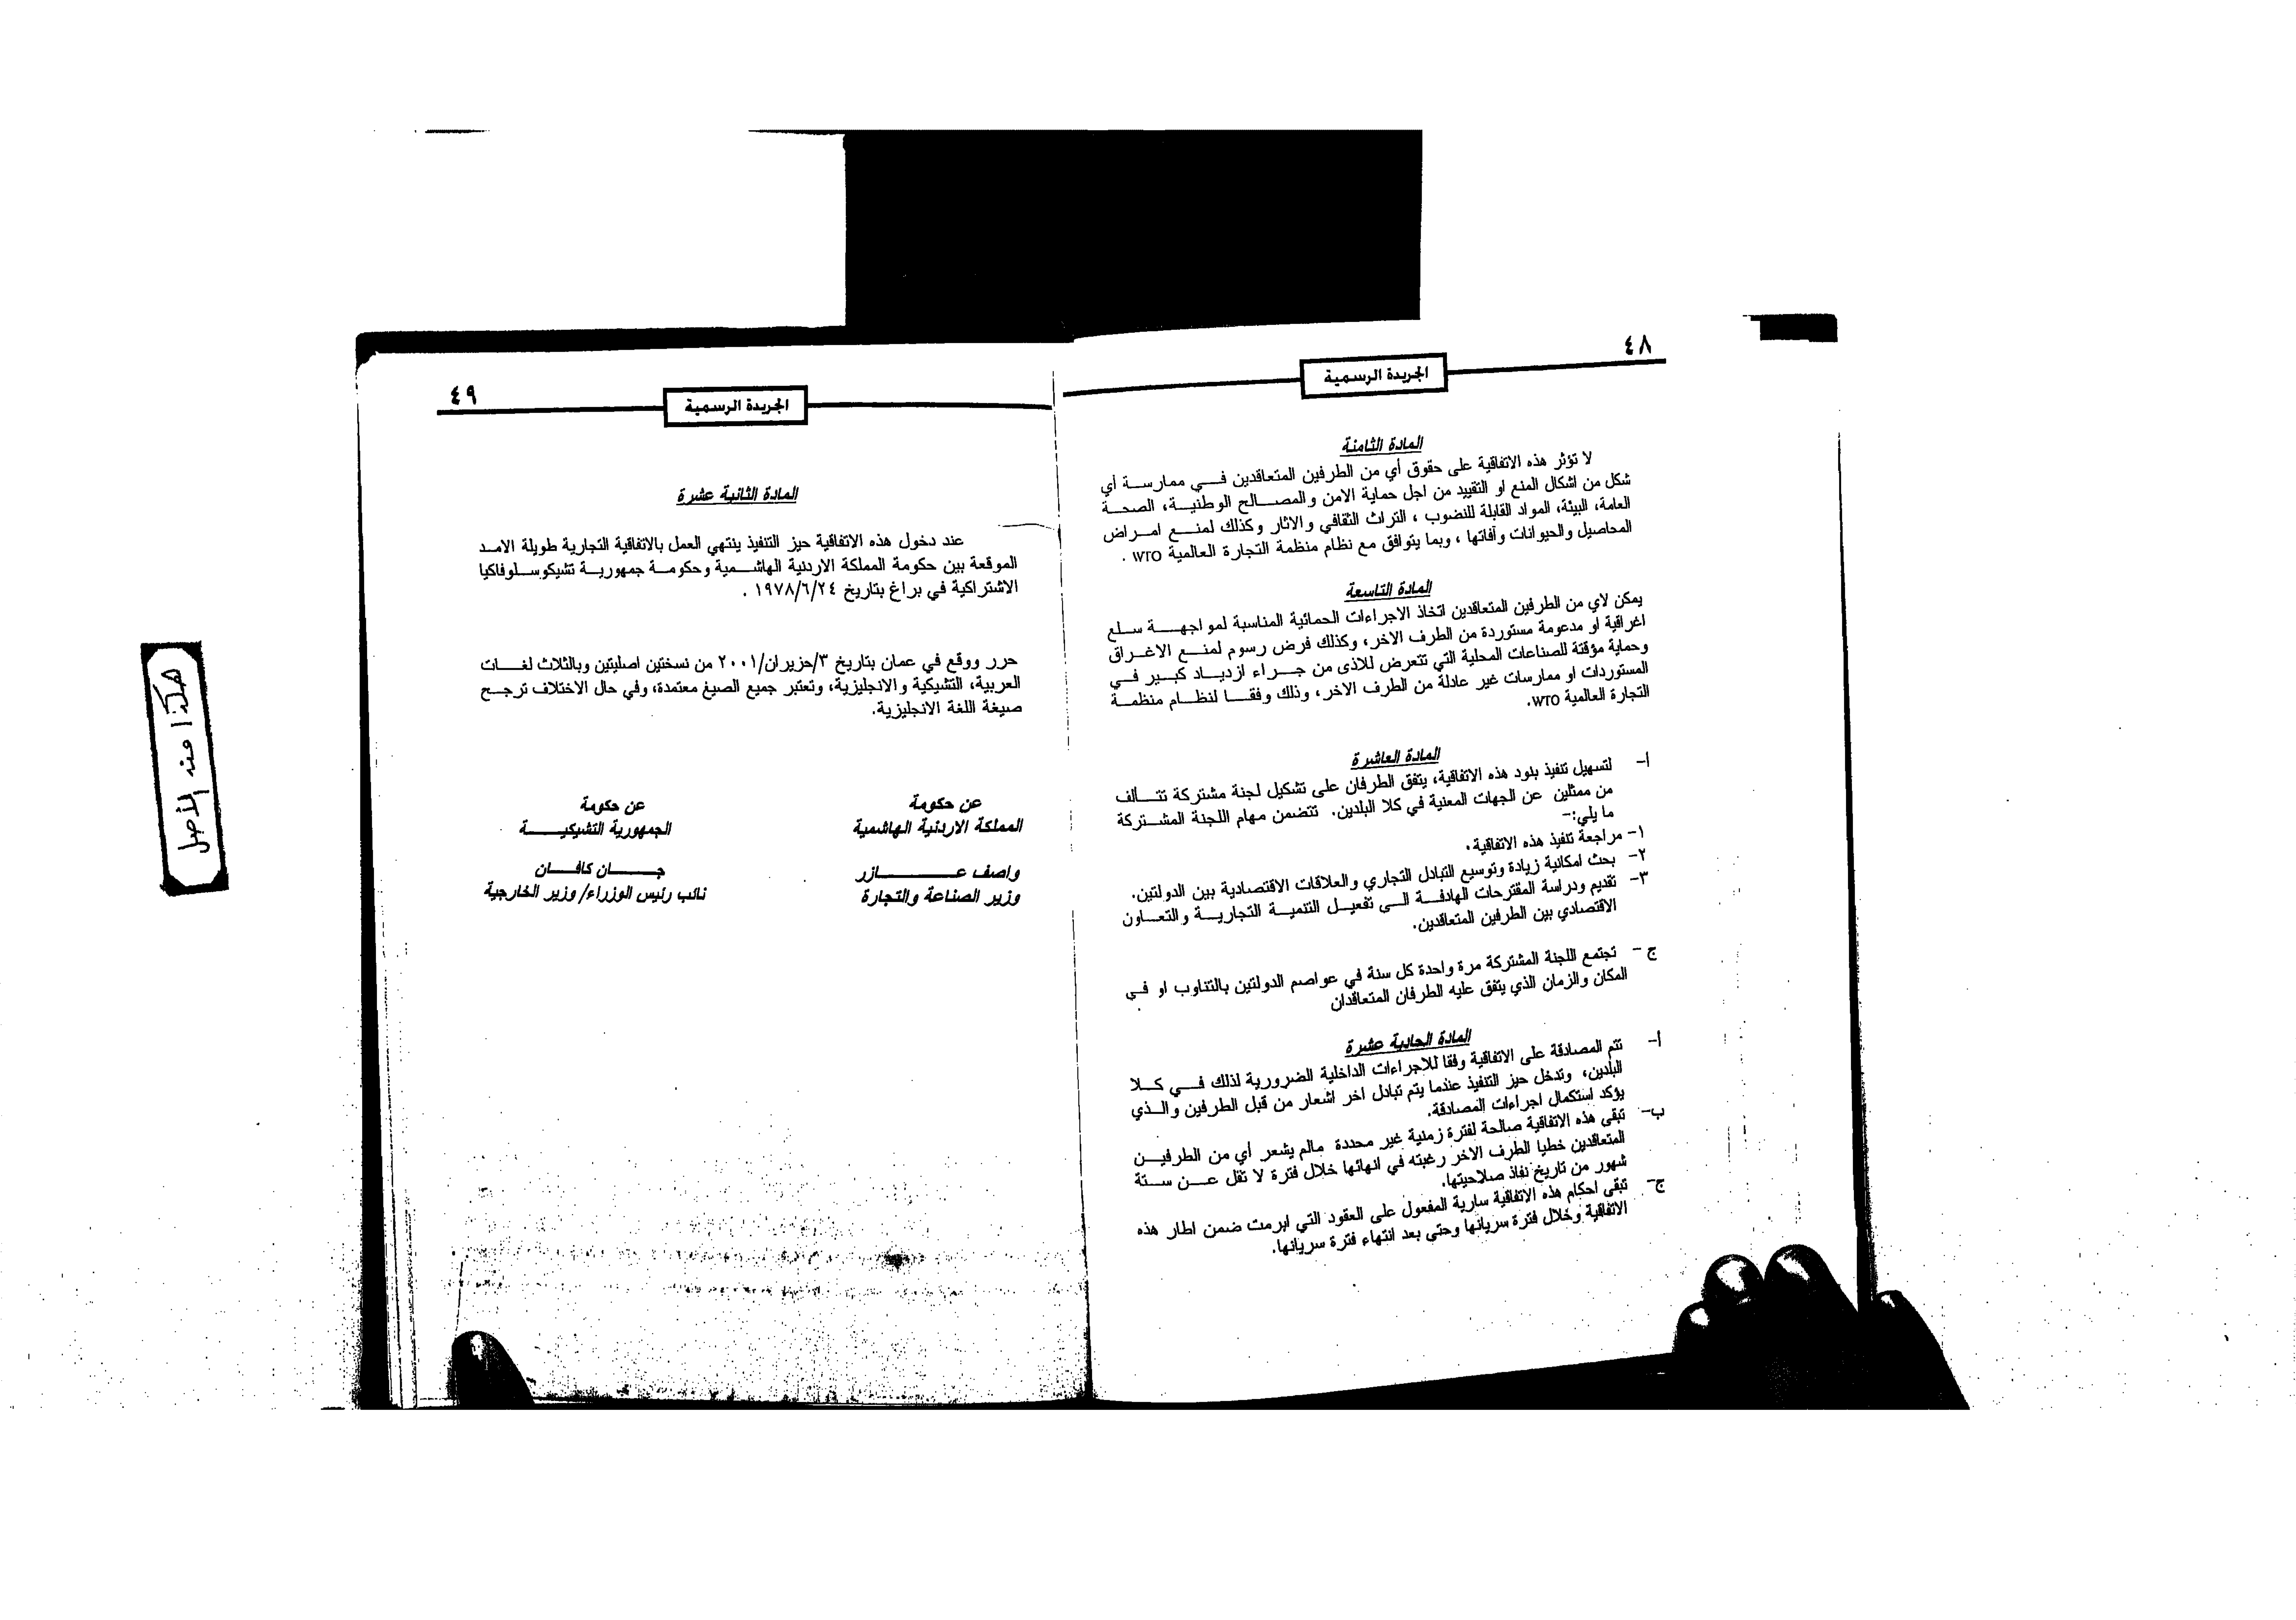 ٤٨
الجريدة الرسمية
المادة الثامنة
لا تؤثر هذه الاتفاقية على حقوق أي من الطرفين المتعاقدين في ممارسة أي
شكل من اشكال المنع او التقييد من اجل حماية الامن والمصالح الوطنية، الصحة
العامة، البيئة، المواد القابلة للنضوب ، التراث الثقافي والاثار وكذلك لمنع امراض
المحاصيل والحيوانات وآفاتها ، وبما يتوافق مع نظام منظمة التجارة العالمية WTO .
المادة التاسعة
يمكن لاي من الطرفين المتعاقدين اتخاذ الاجراءات الحمائية المناسبة لمواجهة سلع
اغراقية او مدعومة مستوردة من الطرف الاخر، وكذلك فرض رسوم لمنع الاغراق
وحماية مؤقتة للصناعات المحلية التي تتعرض للاذى من جراء ازدياد كبير في
المستوردات او ممارسات غير عادلة من الطرف الاخر، وذلك وفقا لنظام منظمة
التجارة العالمية WTO.
المادة العاشرة
أ- لتسهيل تنفيذ بنود هذه الاتفاقية، يتفق الطرفان على تشكيل لجنة مشتركة تتألف
من ممثلين عن الجهات المعنية في كلا البلدين. تتضمن مهام اللجنة المشتركة
ما يلي:-
١- مراجعة تنفيذ هذه الاتفاقية.
٢- بحث امكانية زيادة وتوسيع التبادل التجاري والعلاقات الاقتصادية بين الدولتين.
٣- تقديم ودراسة المقترحات الهادفة الى تفعيل التنمية التجارية والتعاون
الاقتصادي بين الطرفين المتعاقدين.
ج - تجتمع اللجنة المشتركة مرة واحدة كل سنة في عواصم الدولتين بالتناوب او في
المكان والزمان الذي يتفق عليه الطرفان المتعاقدان .
المادة الحادية عشرة
أ- تتم المصادقة على الاتفاقية وفقا للاجراءات الداخلية الضرورية لذلك في كلا
البلدين، وتدخل حيز التنفيذ عندما يتم تبادل اخر اشعار من قبل الطرفين والذي
يؤكد استكمال اجراءات المصادقة.
ب- تبقى هذه الاتفاقية صالحة لفترة زمنية غير محددة مالم يشعر أي من الطرفين
المتعاقدين خطيا الطرف الاخر رغبته في انهائها خلال فترة لا تقل عن ستة
شهور من تاريخ نفاذ صلاحيتها.
ج- تبقى احكام هذه الاتفاقية سارية المفعول على العقود التي ابرمت ضمن اطار هذه
الاتفاقية وخلال فترة سريانها وحتى بعد انتهاء فترة سريانها.
٤٩
الجريدة الرسمية
المادة الثانية عشرة
عند دخول هذه الاتفاقية حيز التنفيذ ينتهي العمل بالاتفاقية التجارية طويلة الامد
الموقعة بين حكومة المملكة الاردنية الهاشمية وحكومة جمهورية تشيكوسلوفاكيا
الاشتراكية في براغ بتاريخ ١٩٧٨/٦/٢٤ .
حرر ووقع في عمان بتاريخ ٣/حزيران/٢٠٠١ من نسختين اصليتين وبالثلاث لغات
العربية، التشيكية والانجليزية، وتعتبر جميع الصيغ معتمدة، وفي حال الاختلاف ترجح
صيغة اللغة الانجليزية.
عن حكومة
المملكة الاردنية الهاشمية
واصف عازر
وزير الصناعة والتجارة
عن حكومة
الجمهورية التشيكية
جان كافان
نائب رئيس الوزراء/ وزير الخارجية
هكذا منه الأصل